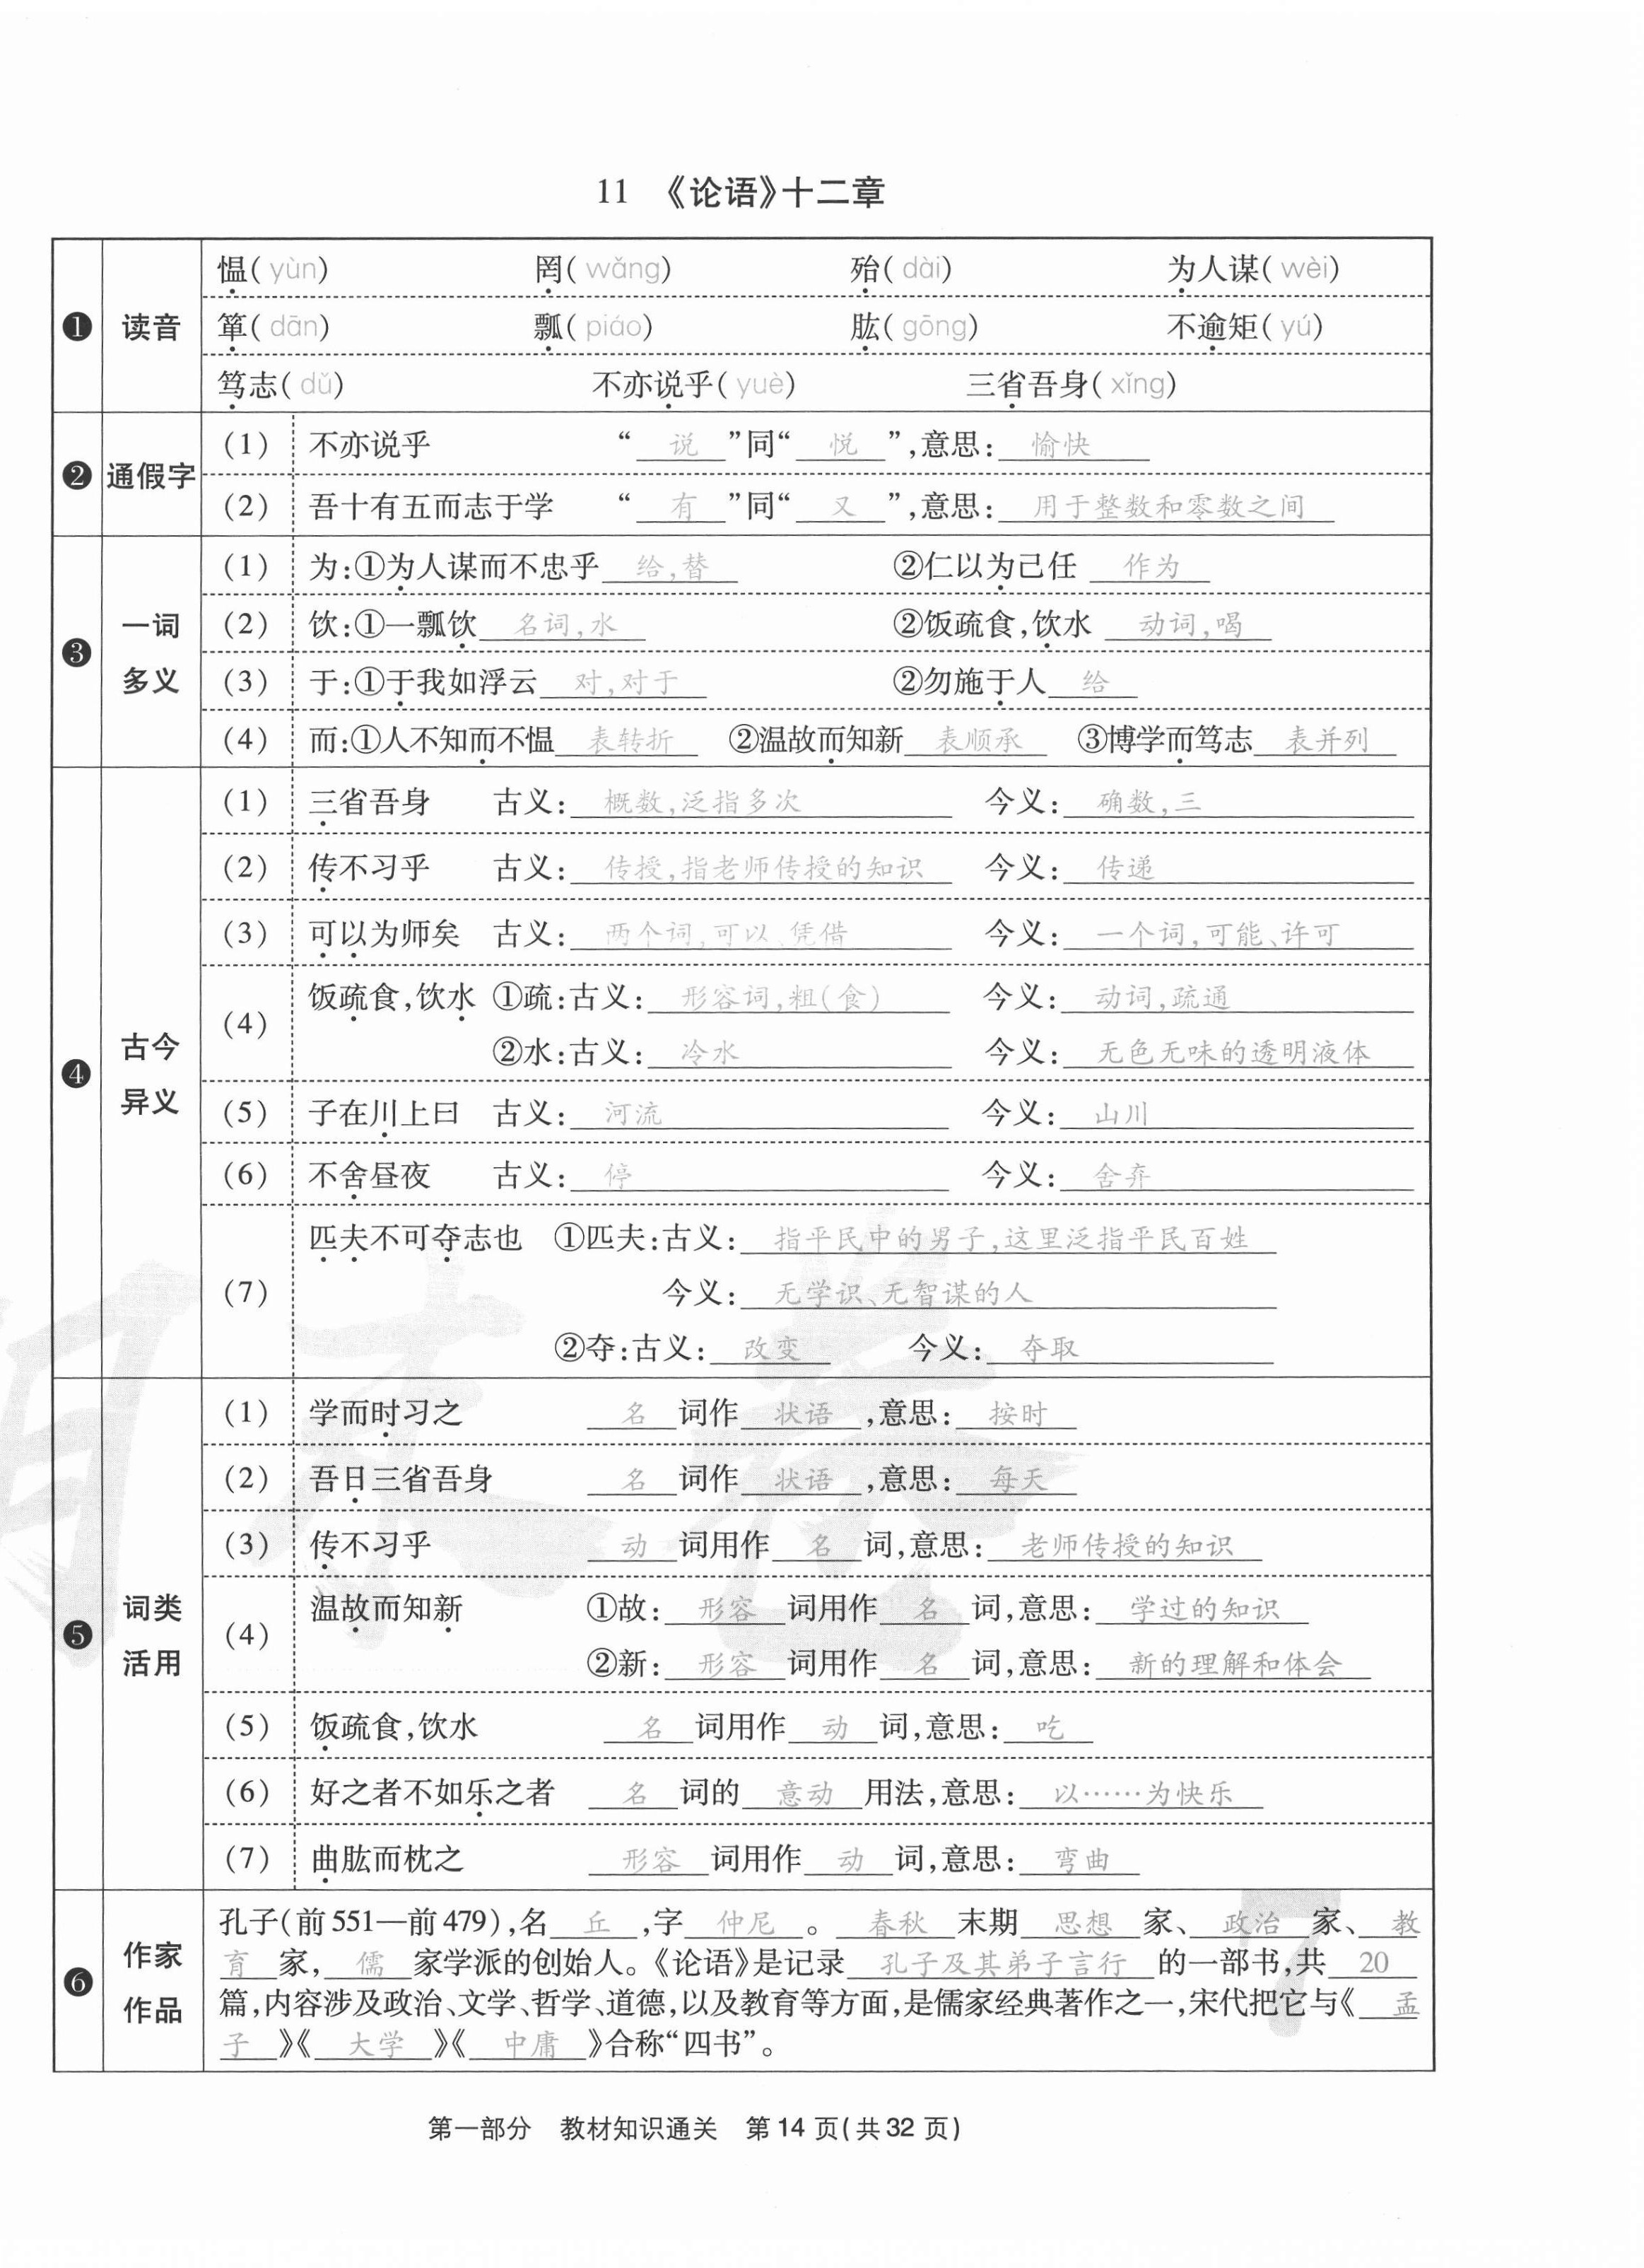 11 《论语》十二章
愠(yùn) 罔(wǎng) 殆(dài) 为人谋(wèi)
❶ 读音 箪(dān) 瓢(piáo) 肱(gōng) 不逾矩(yú)
笃志(dǔ) 不亦说乎(yuè) 三省吾身(xǐng)
❷ 通假字
(1) 不亦说乎 “说”同“悦”,意思:愉快
(2) 吾十有五而志于学 “有”同“又”,意思:用于整数和零数之间
❸ 一词多义
(1) 为:①为人谋而不忠乎 给,替 ②仁以为己任 作为
(2) 饮:①一瓢饮 名词,水 ②饭疏食,饮水 动词,喝
(3) 于:①于我如浮云 对,对于 ②勿施于人 给
(4) 而:①人不知而不愠 表转折 ②温故而知新 表顺承 ③博学而笃志 表并列
❹ 古今异义
(1) 三省吾身 古义:概数,泛指多次 今义:确数,三
(2) 传不习乎 古义:传授,指老师传授的知识 今义:传递
(3) 可以为师矣 古义:两个词,可以、凭借 今义:一个词,可能、许可
(4) 饭疏食,饮水 ①疏:古义:形容词,粗(食) 今义:动词,疏通
②水:古义:冷水 今义:无色无味的透明液体
(5) 子在川上曰 古义:河流 今义:山川
(6) 不舍昼夜 古义:停 今义:舍弃
(7) 匹夫不可夺志也 ①匹夫:古义:指平民中的男子,这里泛指平民百姓
今义:无学识、无智谋的人
②夺:古义:改变 今义:夺取
❺ 词类活用
(1) 学而时习之 名词作状语,意思:按时
(2) 吾日三省吾身 名词作状语,意思:每天
(3) 传不习乎 动词用作名词,意思:老师传授的知识
(4) 温故而知新 ①故:形容词用作名词,意思:学过的知识
②新:形容词用作名词,意思:新的理解和体会
(5) 饭疏食,饮水 名词用作动词,意思:吃
(6) 好之者不如乐之者 名词的意动用法,意思:以……为快乐
(7) 曲肱而枕之 形容词用作动词,意思:弯曲
❻ 作家作品
孔子(前551—前479),名丘,字仲尼。春秋末期思想家、政治家、教
育家,儒家学派的创始人。《论语》是记录孔子及其弟子言行的一部书,共20
篇,内容涉及政治、文学、哲学、道德,以及教育等方面,是儒家经典著作之一,宋代把它与《孟
子》《大学》《中庸》合称“四书”。
第一部分 教材知识通关 第14页(共32页)